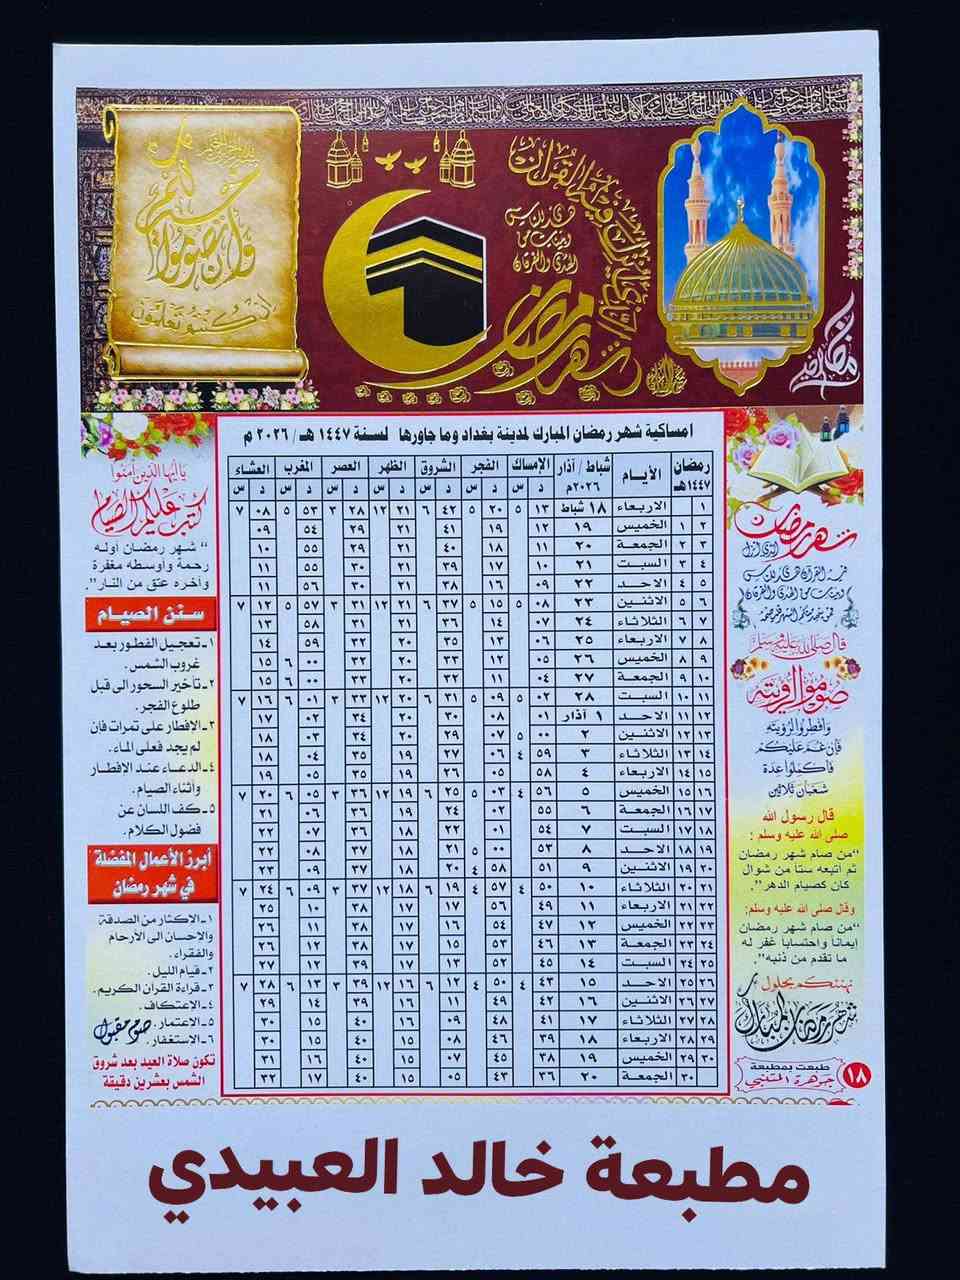 وأن تصوموا
خير لكم
إن كنتم تعلمون
شهر رمضان
الذي أنزل فيه القرآن
هدى للناس
وبينات من
الهدى والفرقان
امساكية شهر رمضان المبارك لمدينة بغداد وما جاورها لسنة ١٤٤٧ هـ / ٢٠٢٦ م
رمضان ١٤٤٧هـ الأيـام شباط / آذار ٢٠٢٦م الإمساك الفجر الشروق الظهر العصر المغرب العشاء
د س د س د س د س د س د س د س
١ الاربعاء ١٨ شباط ١٣ ٥ ٢٠ ٥ ٤٢ ٦ ٢١ ١٢ ٢٨ ٣ ٥٣ ٥ ٠٨ ٧
٢ ١ الخميس ١٩ ١٢ ١٩ ٤١ ٢١ ٢٩ ٥٤ ٠٩
٣ ٢ الجمعة ٢٠ ١١ ١٨ ٤٠ ٢١ ٢٩ ٥٥ ١٠
٤ ٣ السبت ٢١ ١٠ ١٧ ٣٩ ٢١ ٣٠ ٥٥ ١١
٥ ٤ الاحد ٢٢ ٠٩ ١٦ ٣٨ ٢١ ٣٠ ٥٦ ١١
٦ ٥ الاثنين ٢٣ ٠٨ ٥ ١٥ ٥ ٣٧ ٦ ٢١ ١٢ ٣١ ٣ ٥٧ ٥ ١٢ ٧
٧ ٦ الثلاثاء ٢٤ ٠٧ ١٤ ٣٦ ٢١ ٣١ ٥٨ ١٣
٨ ٧ الاربعاء ٢٥ ٠٦ ١٣ ٣٥ ٢٠ ٣٢ ٥٩ ١٤
٩ ٨ الخميس ٢٦ ٠٥ ١٢ ٣٣ ٢٠ ٣٢ ٠٠ ٦ ١٥
١٠ ٩ الجمعة ٢٧ ٠٤ ١١ ٣٢ ٢٠ ٣٣ ٠٠ ٦ ١٥
١١ ١٠ السبت ٢٨ ٠٢ ٥ ٠٩ ٥ ٣١ ٦ ٢٠ ١٢ ٣٣ ٣ ٠١ ٦ ١٦ ٧
١٢ ١١ الاحد ١ آذار ٠١ ٠٨ ٣٠ ٢٠ ٣٤ ٠٢ ١٧
١٣ ١٢ الاثنين ٢ ٠٠ ٥ ٠٧ ٢٩ ٢٠ ٣٤ ٠٣ ١٨
١٤ ١٣ الثلاثاء ٣ ٥٩ ٤ ٠٦ ٢٧ ١٩ ٣٥ ٠٤ ١٨
١٥ ١٤ الاربعاء ٤ ٥٨ ٠٥ ٢٦ ١٩ ٣٥ ٠٥ ١٩
١٦ ١٥ الخميس ٥ ٥٦ ٤ ٠٣ ٥ ٢٥ ٦ ١٩ ١٢ ٣٦ ٣ ٠٥ ٦ ٢٠ ٧
١٧ ١٦ الجمعة ٦ ٥٥ ٠٢ ٢٤ ١٩ ٣٦ ٠٦ ٢١
١٨ ١٧ السبت ٧ ٥٤ ٠١ ٢٢ ١٨ ٣٦ ٠٧ ٢٢
١٩ ١٨ الاحد ٨ ٥٣ ٠٠ ٥ ٢١ ١٨ ٣٧ ٠٨ ٢٢
٢٠ ١٩ الاثنين ٩ ٥١ ٥٨ ٤ ٢٠ ١٨ ٣٧ ٠٩ ٢٣
٢١ ٢٠ الثلاثاء ١٠ ٥٠ ٤ ٥٧ ٤ ١٩ ٦ ١٨ ١٢ ٣٧ ٣ ٠٩ ٦ ٢٤ ٧
٢٢ ٢١ الاربعاء ١١ ٤٩ ٥٦ ١٧ ١٧ ٣٨ ١٠ ٢٥
٢٣ ٢٢ الخميس ١٢ ٤٧ ٥٤ ١٦ ١٧ ٣٨ ١١ ٢٦
٢٤ ٢٣ الجمعة ١٣ ٤٦ ٥٣ ١٥ ١٧ ٣٨ ١٢ ٢٦
٢٥ ٢٤ السبت ١٤ ٤٥ ٥٢ ١٣ ١٧ ٣٩ ١٢ ٢٧
٢٦ ٢٥ الاحد ١٥ ٤٣ ٤ ٥٠ ٤ ١٢ ٦ ١٦ ١٢ ٣٩ ٣ ١٣ ٦ ٢٨ ٧
٢٧ ٢٦ الاثنين ١٦ ٤٢ ٤٩ ١١ ١٦ ٣٩ ١٤ ٢٩
٢٨ ٢٧ الثلاثاء ١٧ ٤١ ٤٨ ٠٩ ١٦ ٤٠ ١٥ ٣٠
٢٩ ٢٨ الاربعاء ١٨ ٣٩ ٤٦ ٠٨ ١٥ ٤٠ ١٥ ٣٠
٣٠ ٢٩ الخميس ١٩ ٣٨ ٤٥ ٠٧ ١٥ ٤٠ ١٦ ٣١
٣٠ الجمعة ٢٠ ٣٦ ٤٣ ٠٥ ١٥ ٤٠ ١٧ ٣٢
شهر رمضان
الذي أنزل
فيه القرآن هدى للناس
وبينات من الهدى والفرقان
فمن شهد منكم الشهر فليصمه
قال صلى الله عليه وسلم
صوموا لرؤيته
وأفطروا لرؤيته
فإن غم عليكم
فأكملوا عدة
شعبان ثلاثين
قال رسول الله
صلى الله عليه وسلم :
"من صام شهر رمضان
ثم أتبعه ستاً من شوال
كان كصيام الدهر".
وقال صلى الله عليه وسلم:
"من صام شهر رمضان
إيماناً واحتساباً غفر له
ما تقدم من ذنبه".
نهنئكم بحلول
شهر رمضان المبارك
طبعت بمطبعة
جوهرة المتنبي
١٨
يا أيها الذين آمنوا
كتب عليكم الصيام
" شهر رمضان أوله
رحمة وأوسطه مغفرة
وآخره عتق من النار".
سنن الصيام
١ـ تعجيل الفطور بعد
غروب الشمس.
٢ـ تأخير السحور الى قبل
طلوع الفجر.
٣ـ الإفطار على تمرات فان
لم يجد فعلى الماء.
٤ـ الدعاء عند الإفطار
وأثناء الصيام.
٥ـ كف اللسان عن
فضول الكلام.
أبرز الأعمال المفضلة
في شهر رمضان
١ـ الاكثار من الصدقة
والإحسان الى الأرحام
والفقراء.
٢ـ قيام الليل.
٣ـ قراءة القران الكريم.
٤ـ الاعتكاف.
٥ـ الاعتمار.
٦ـ الاستغفار.
صوم مقبول
تكون صلاة العيد بعد شروق
الشمس بعشرين دقيقة
مطبعة خالد العبيدي